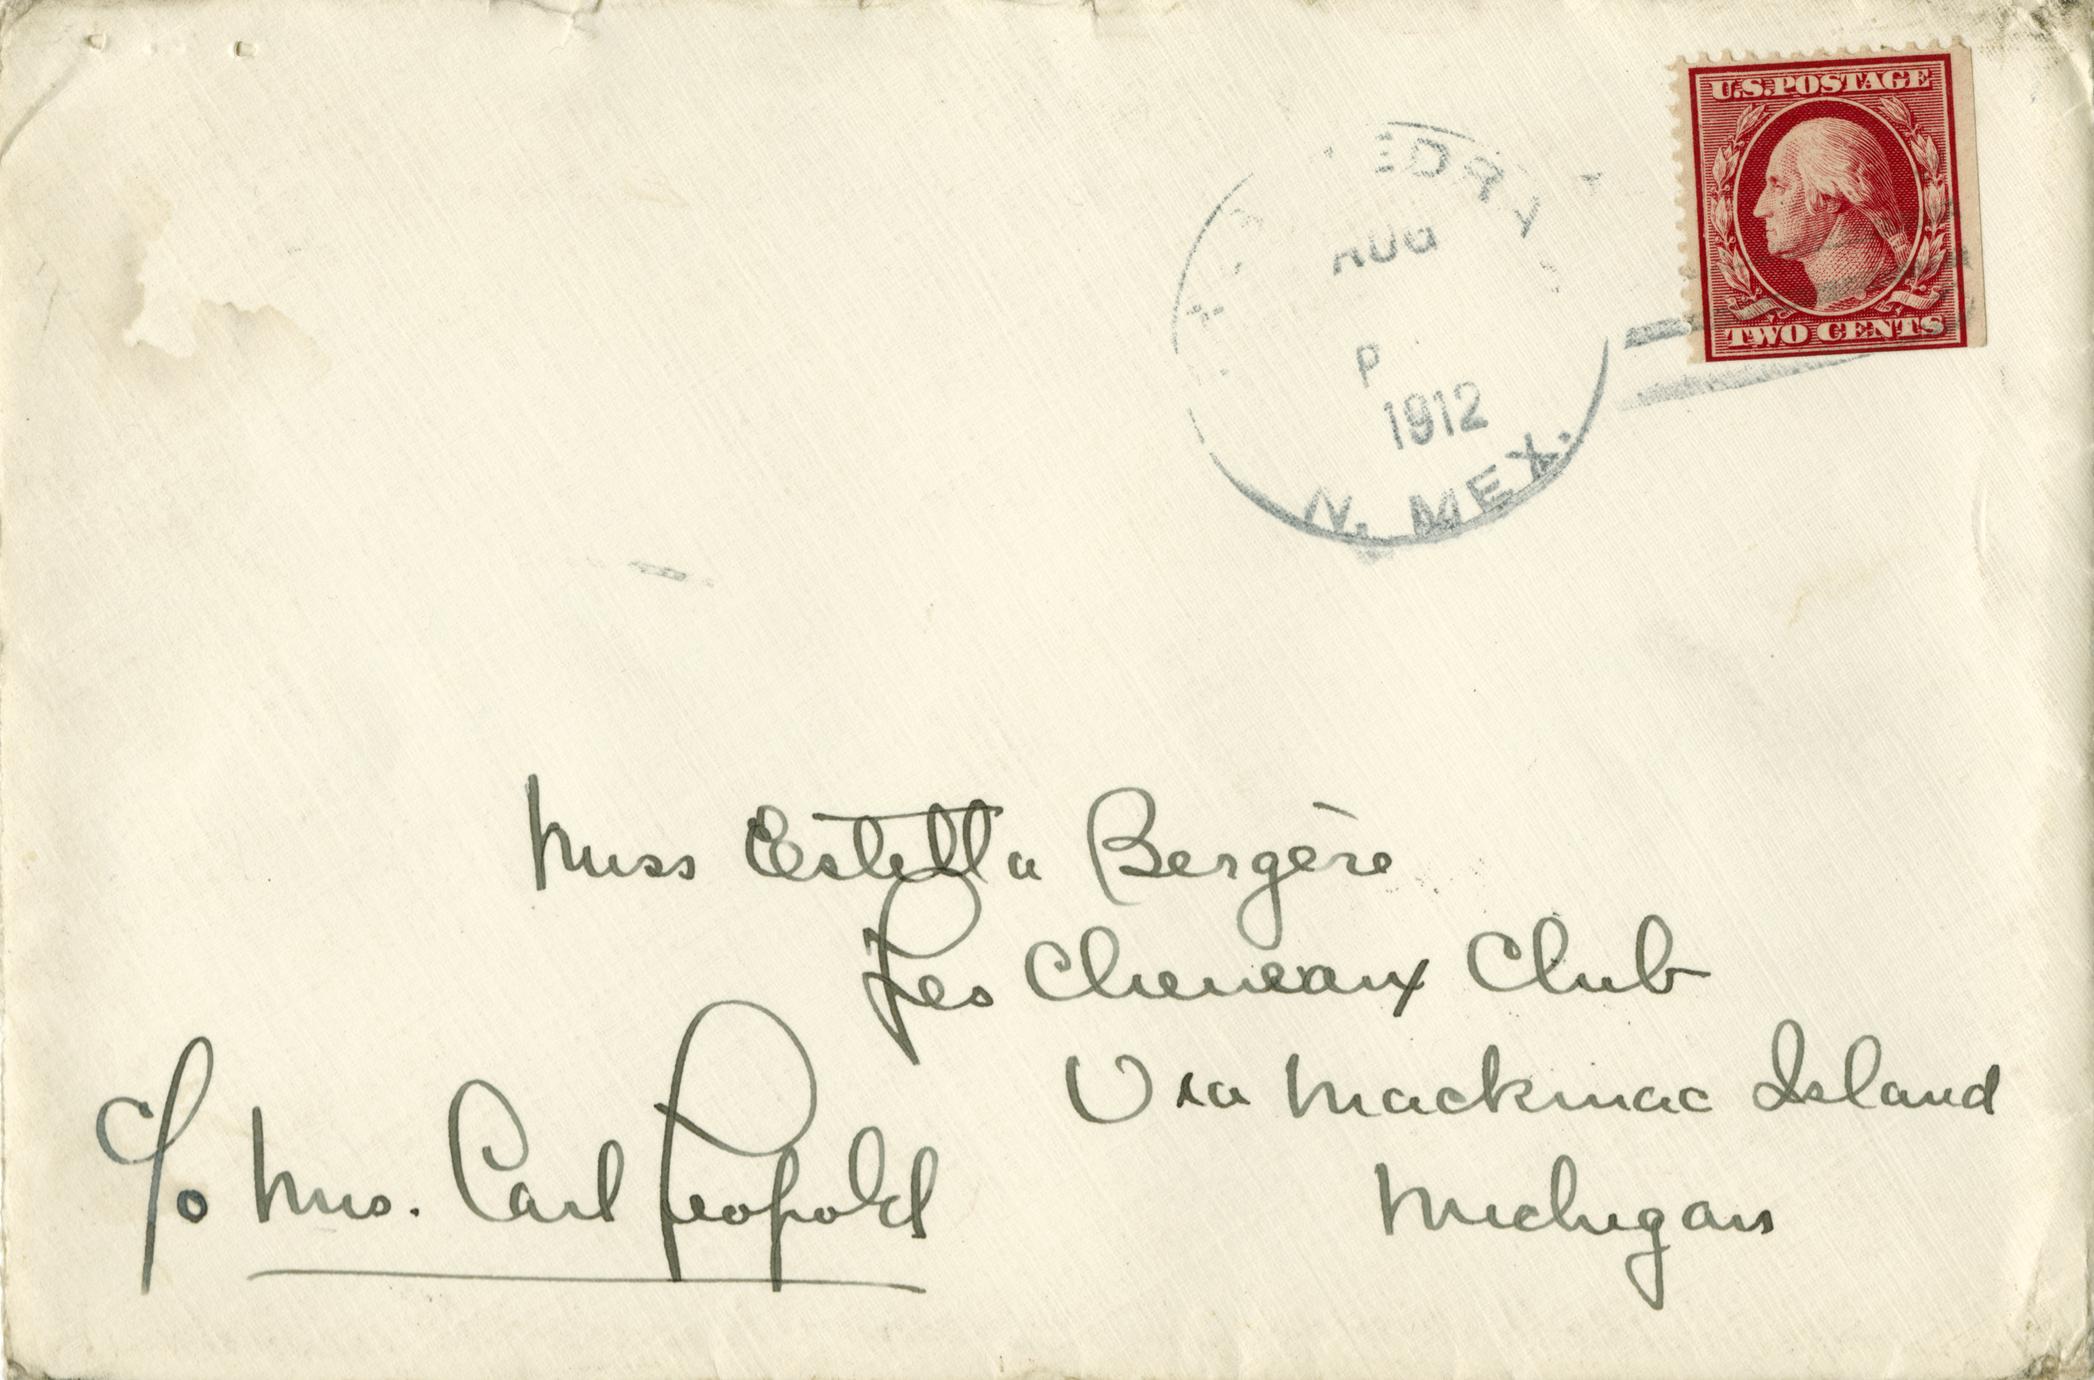 U.S. POSTAGE
TWO CENTS
AUG
P
1912
N. MEX.
Miss Estella Bergère
Les Cheneaux Club
Via Mackinac Island
Michigan
c/o Mrs. Carl Leopold